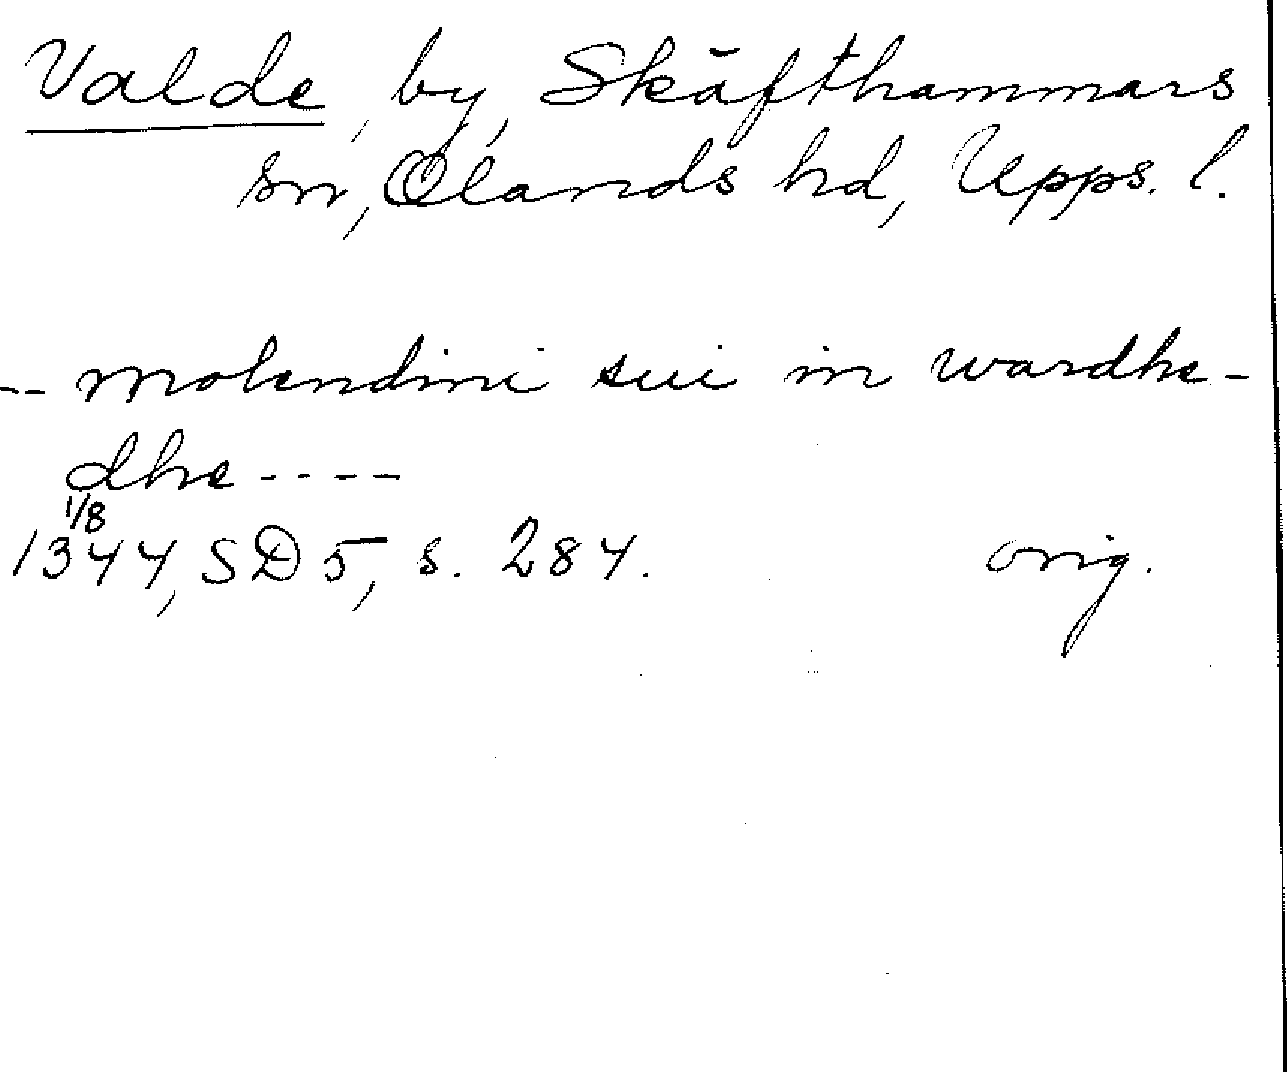 Valde, by, Skäfthammars
sn, Ölands hd, Upps. l.
-- molendini sui in wardhe-
dhe ----
1/8
1344, SD 5, s. 284. orig.